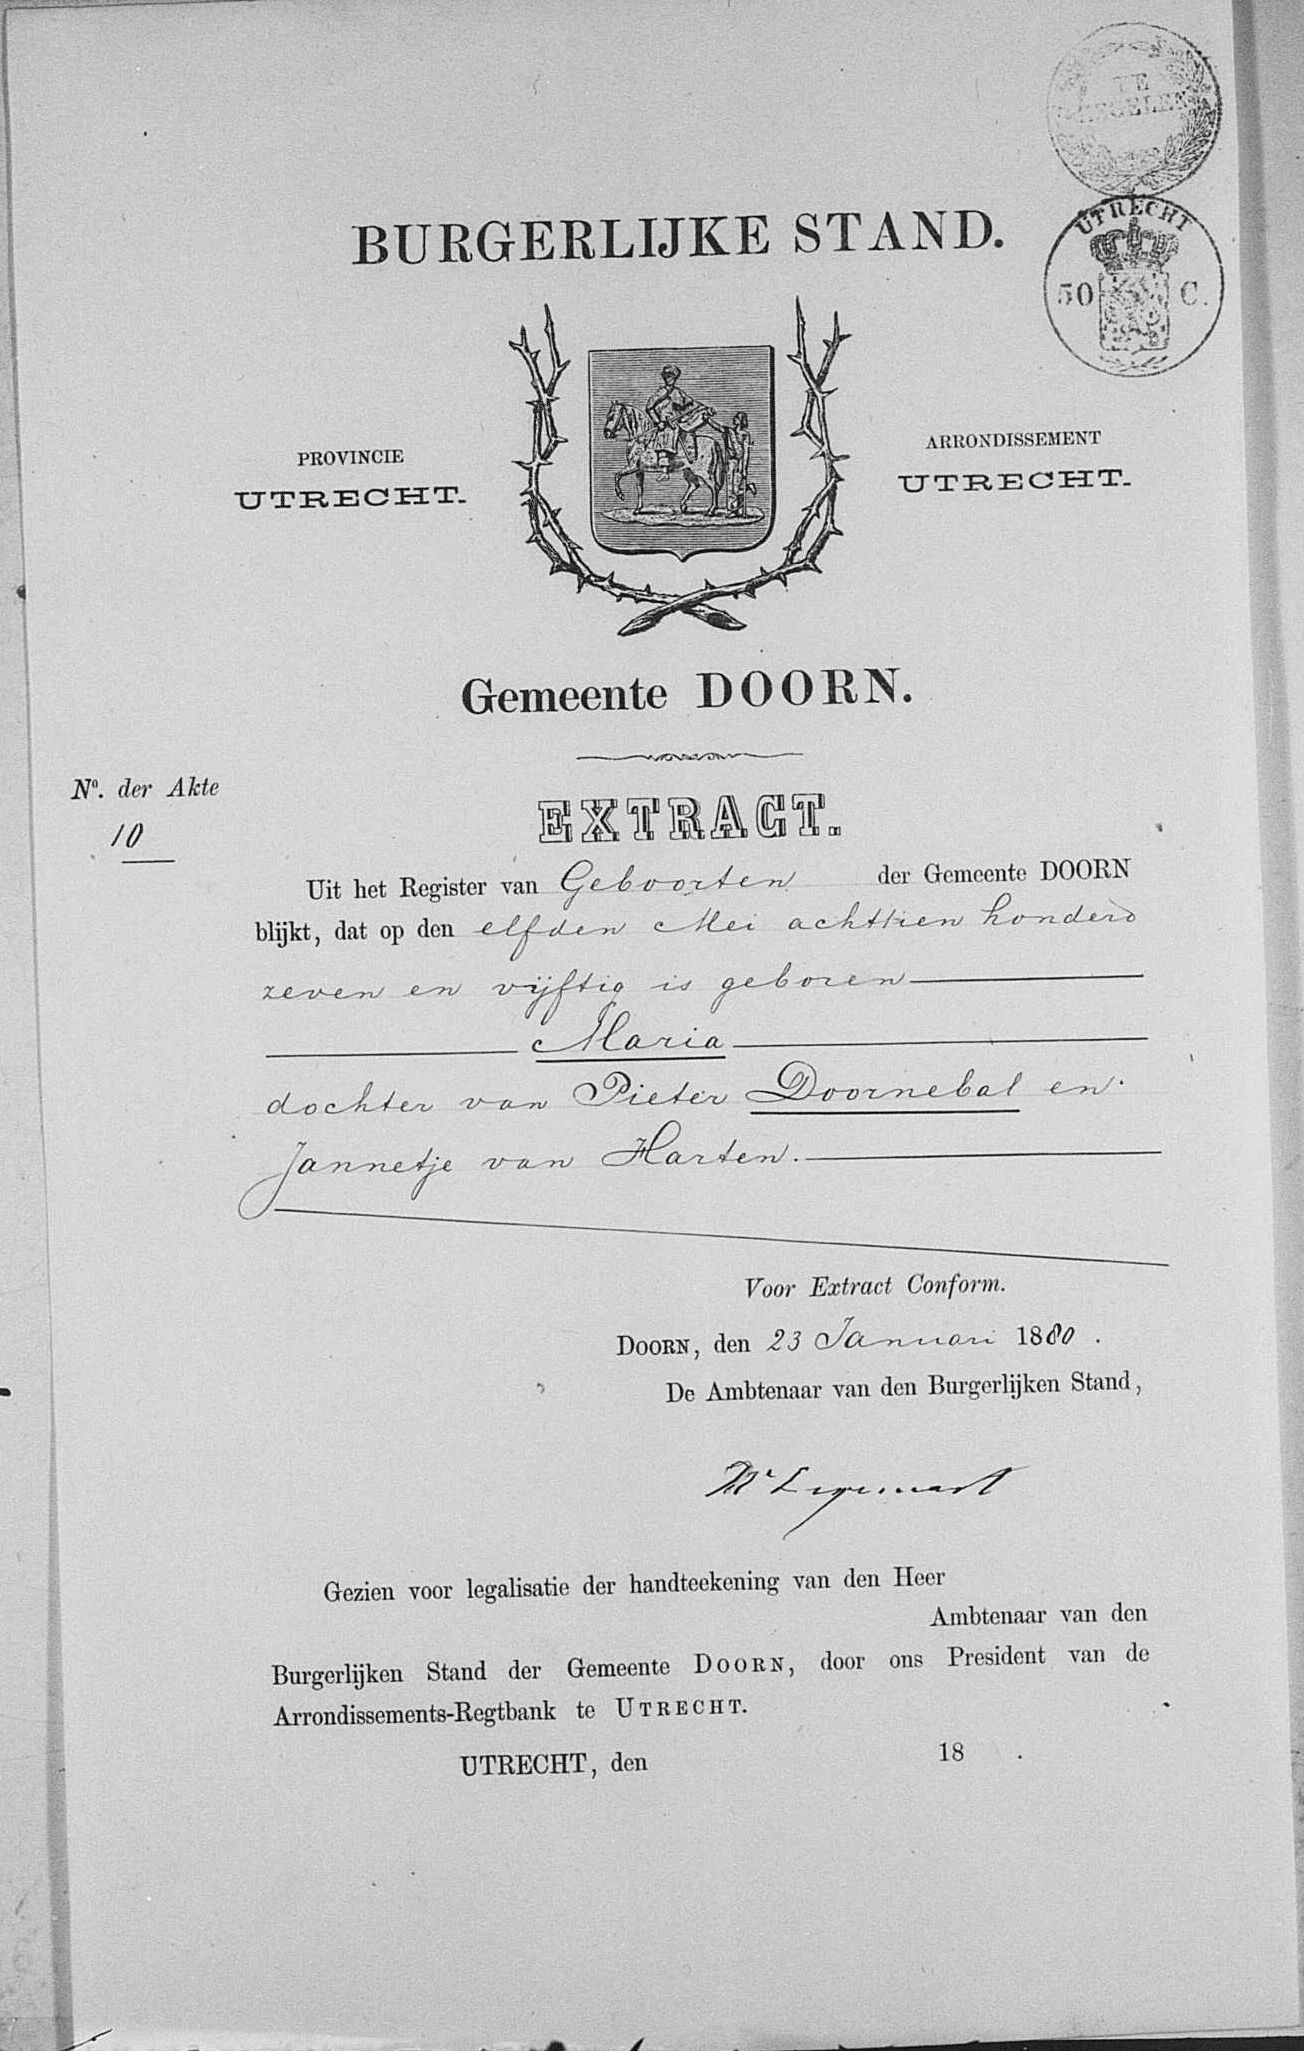 TE
ZEGELEN
UTRECHT
50 C.
BURGERLIJKE STAND.
PROVINCIE
UTRECHT.
ARRONDISSEMENT
UTRECHT.
Gemeente DOORN.
No. der Akte
10
EXTRACT.
Uit het Register van Geboorten der Gemeente DOORN
blijkt, dat op den elfden Mei achttien honderd
zeven en vijftig is geboren
Maria
dochter van Pieter Doornebal en
Jannetje van Harten.
Voor Extract Conform.
DOORN, den 23 Januari 1880.
De Ambtenaar van den Burgerlijken Stand,
Gezien voor legalisatie der handteekening van den Heer
Ambtenaar van den
Burgerlijken Stand der Gemeente DOORN, door ons President van de
Arrondissements-Regtbank te UTRECHT.
UTRECHT, den 18 .